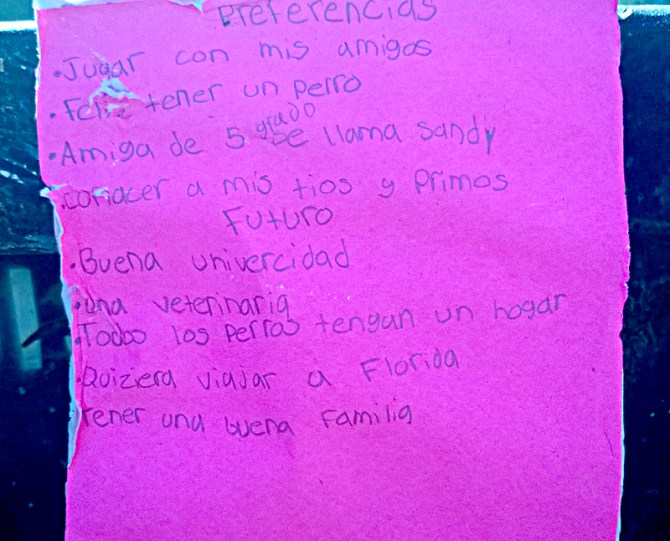 Preferencias
• Jugar con mis amigos
• Feliz tener un perro
• Amiga de 5 grado se llama sandy
• conacer a mis tios y primos
Futuro
• Buena univercidad
• una veterinaria
• Todos los perros tengan un hogar
• Quiziera viajar a Florida
tener una buena familia